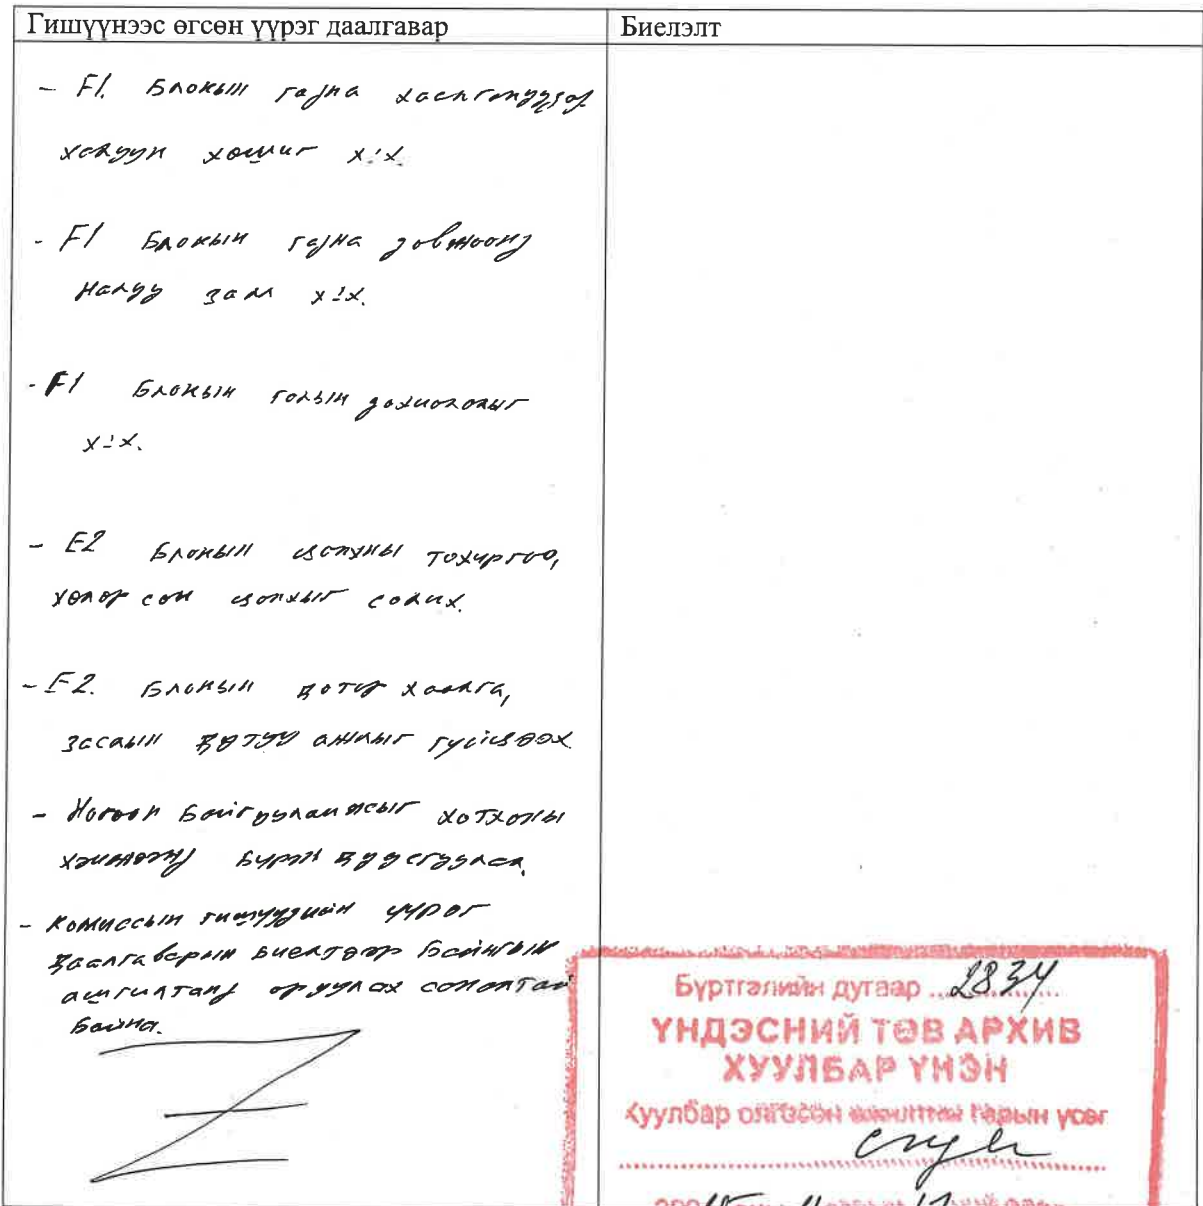 Гишүүнээс өгсөн үүрэг даалгавар
Биелэлт
- F1. Блокын гадна
халуун хөшиг х:х.
- F1 Блокын гадна довжоонд
налуу зам х:х.
- F1 Блокын голын дохиоллыг
х:х.
- E2 Блокын цонхны тохиргоо,
цонхыг солих.
- E2. Блокын дотор хаалга,
засалын дутуу ажлыг гүйцээх
- Ногоон байгууламжыг хотхоны
хэмжээнд бүрэн дуусгуулсан.
- Комиссын гишүүдийн үүрэг
даалгаварын биелтээр байнгын
ашгилтанд оруулах саналтай
байна.
Бүртгэлийн дугаар 2834
ҮНДЭСНИЙ ТӨВ АРХИВ
ХУУЛБАР ҮНЭН
Хуулбар олгосон ажилтны гарын үсэг